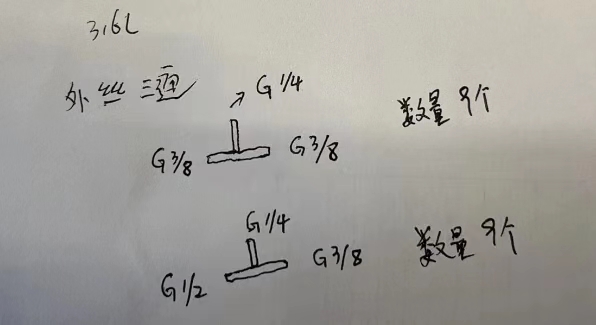 316L
外丝三通
G 1/4
G 3/8 G 3/8 数量 9个
G 1/4
G 1/2 G 3/8 数量 9个